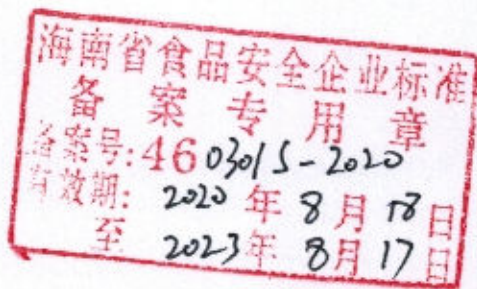 海南省食品安全企业标准
备案专用章
备案号:46 03015-2020
有效期: 2020 年 8 月 18 日
至 2023 年 8 月 17 日